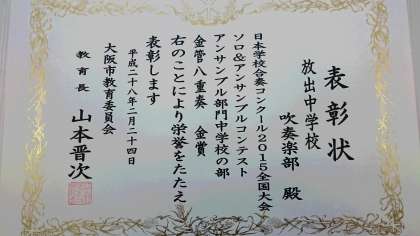 表彰状
放出中学校
吹奏楽部 殿
日本学校合奏コンクール2015全国大会
ソロ&アンサンブルコンテスト
アンサンブル部門中学校の部
金管八重奏 金賞
右のことにより栄誉をたたえ
表彰します
平成二十八年二月二十四日
大阪市教育委員会
教育長 山本晋次